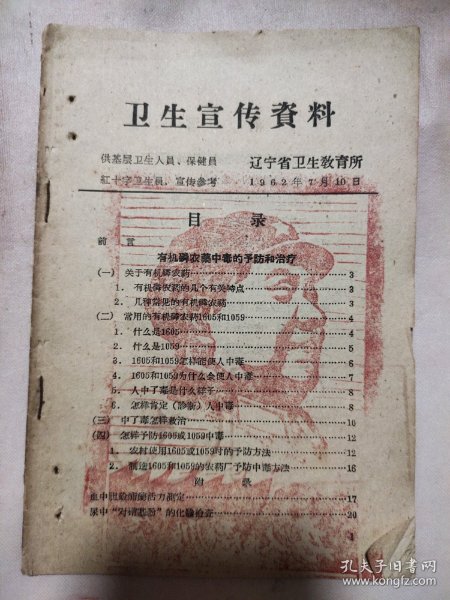 卫生宣传資料
供基层卫生人員、保健員
紅十字卫生員、宣传参考
辽宁省卫生教育所
1962年7月10日
目录
前言
有机磷农葯中毒的予防和治疗
(一) 关于有机磷农葯 3
1. 有机磷农葯的几个有关特点 3
2. 几种常见的有机磷农葯 3
(二) 常用的有机磷农葯1605和1059 4
1. 什么是1605 4
2. 什么是1059 5
3. 1605和1059怎样能使人中毒 6
4. 1605和1059为什么会使人中毒 7
5. 人中了毒是什么样子 8
6. 怎样肯定(診断)人中毒 8
(三) 中了毒怎样救治 10
(四) 怎样予防1605或1059中毒 12
1. 农村使用1605或1059时的予防方法 12
2. 制造1605和1059的农葯厂予防中毒方法 16
附录
血中胆硷酯酶活力测定 17
尿中“对硝基酚”的化驗检查 20
1
孔夫子旧书网